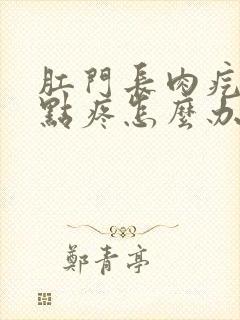 肛門長肉疙
點疼怎麼办
鄭青亭